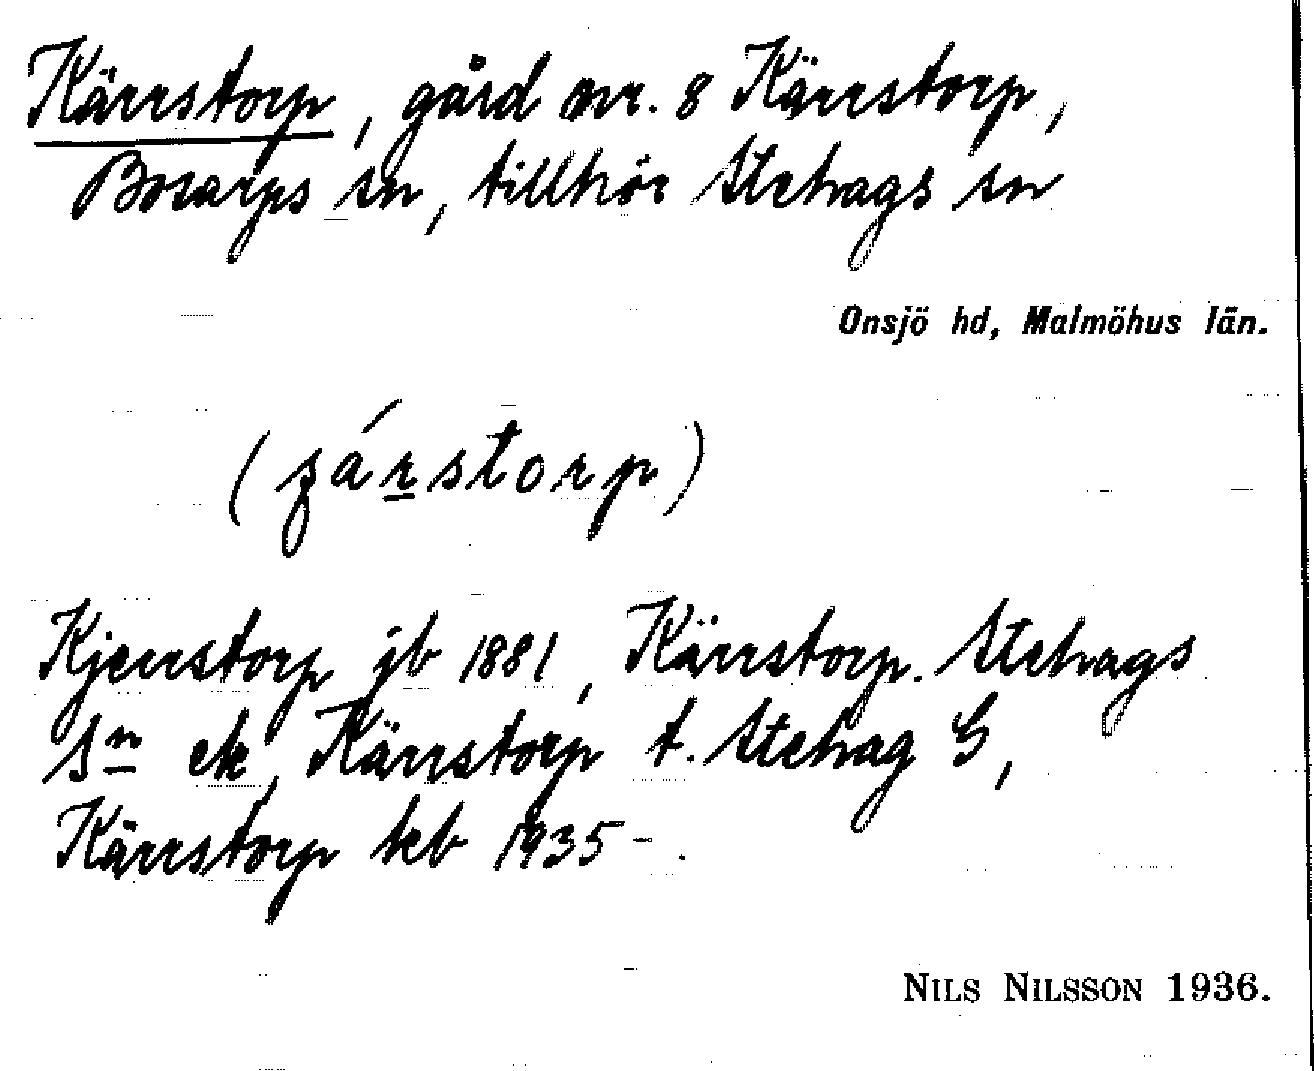 Kärrstorp, gård nr. 8 Kärrstorp,
Bosarps sn, tillhör Stehags sn
Onsjö hd, Malmöhus län.
(ʒárstorp)
Kjerrstorp jb 1881, Kärrstorp. Stehags
Sn ek, Kärrstorp t. Stehag G,
Kärrstorp kb 1935-.
NILS NILSSON 1936.